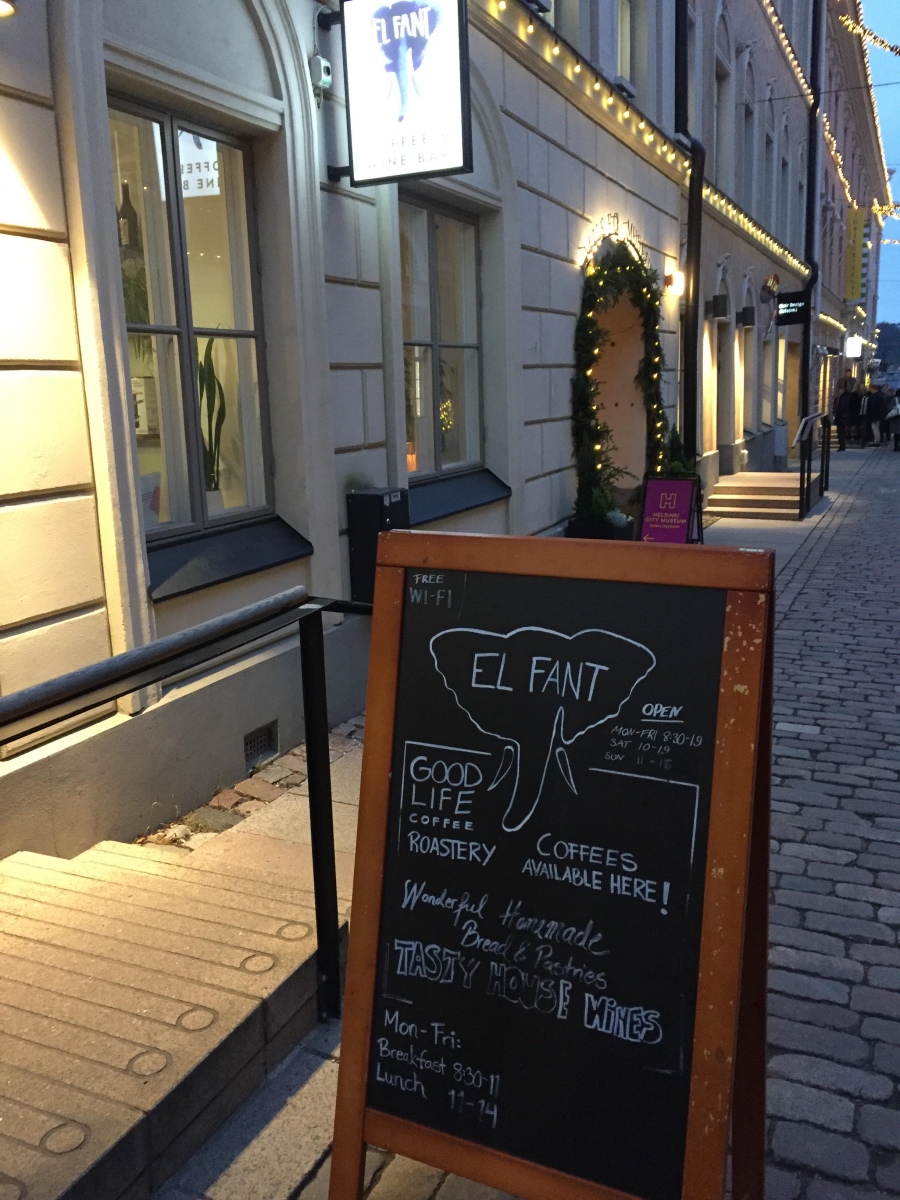 EL FANT
COFFEE &
WINE BAR
HELSINKI
CITY MUSEUM
FREE
WI-FI
EL FANT
OPEN
MON-FRI 8:30-19
SAT 10-19
SUN 11-18
GOOD
LIFE
COFFEE
ROASTERY
COFFEES
AVAILABLE HERE!
Wonderful Homemade
Bread & Pastries
TASTY HOUSE WINES
Mon-Fri:
Breakfast 8:30-11
Lunch 11-14